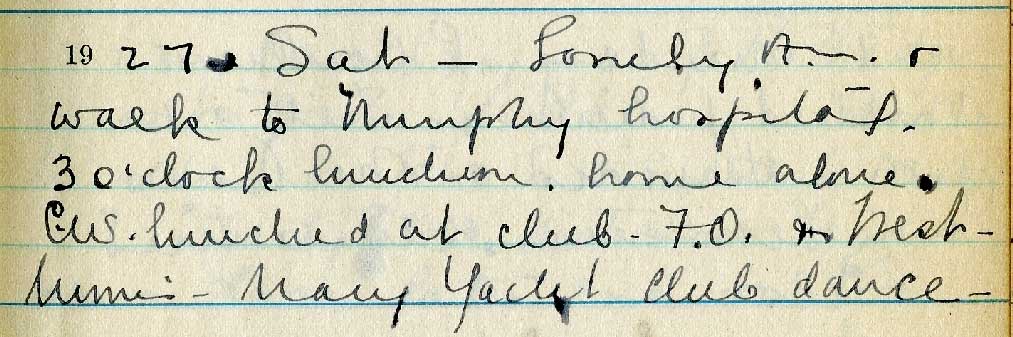 1927. Sat - Lonely A.m. &
walk to Murphy hospital.
3 o'clock luncheon. home alone.
C.W. lunched at club - F.O. & West-
- Navy Yacht Club dance -